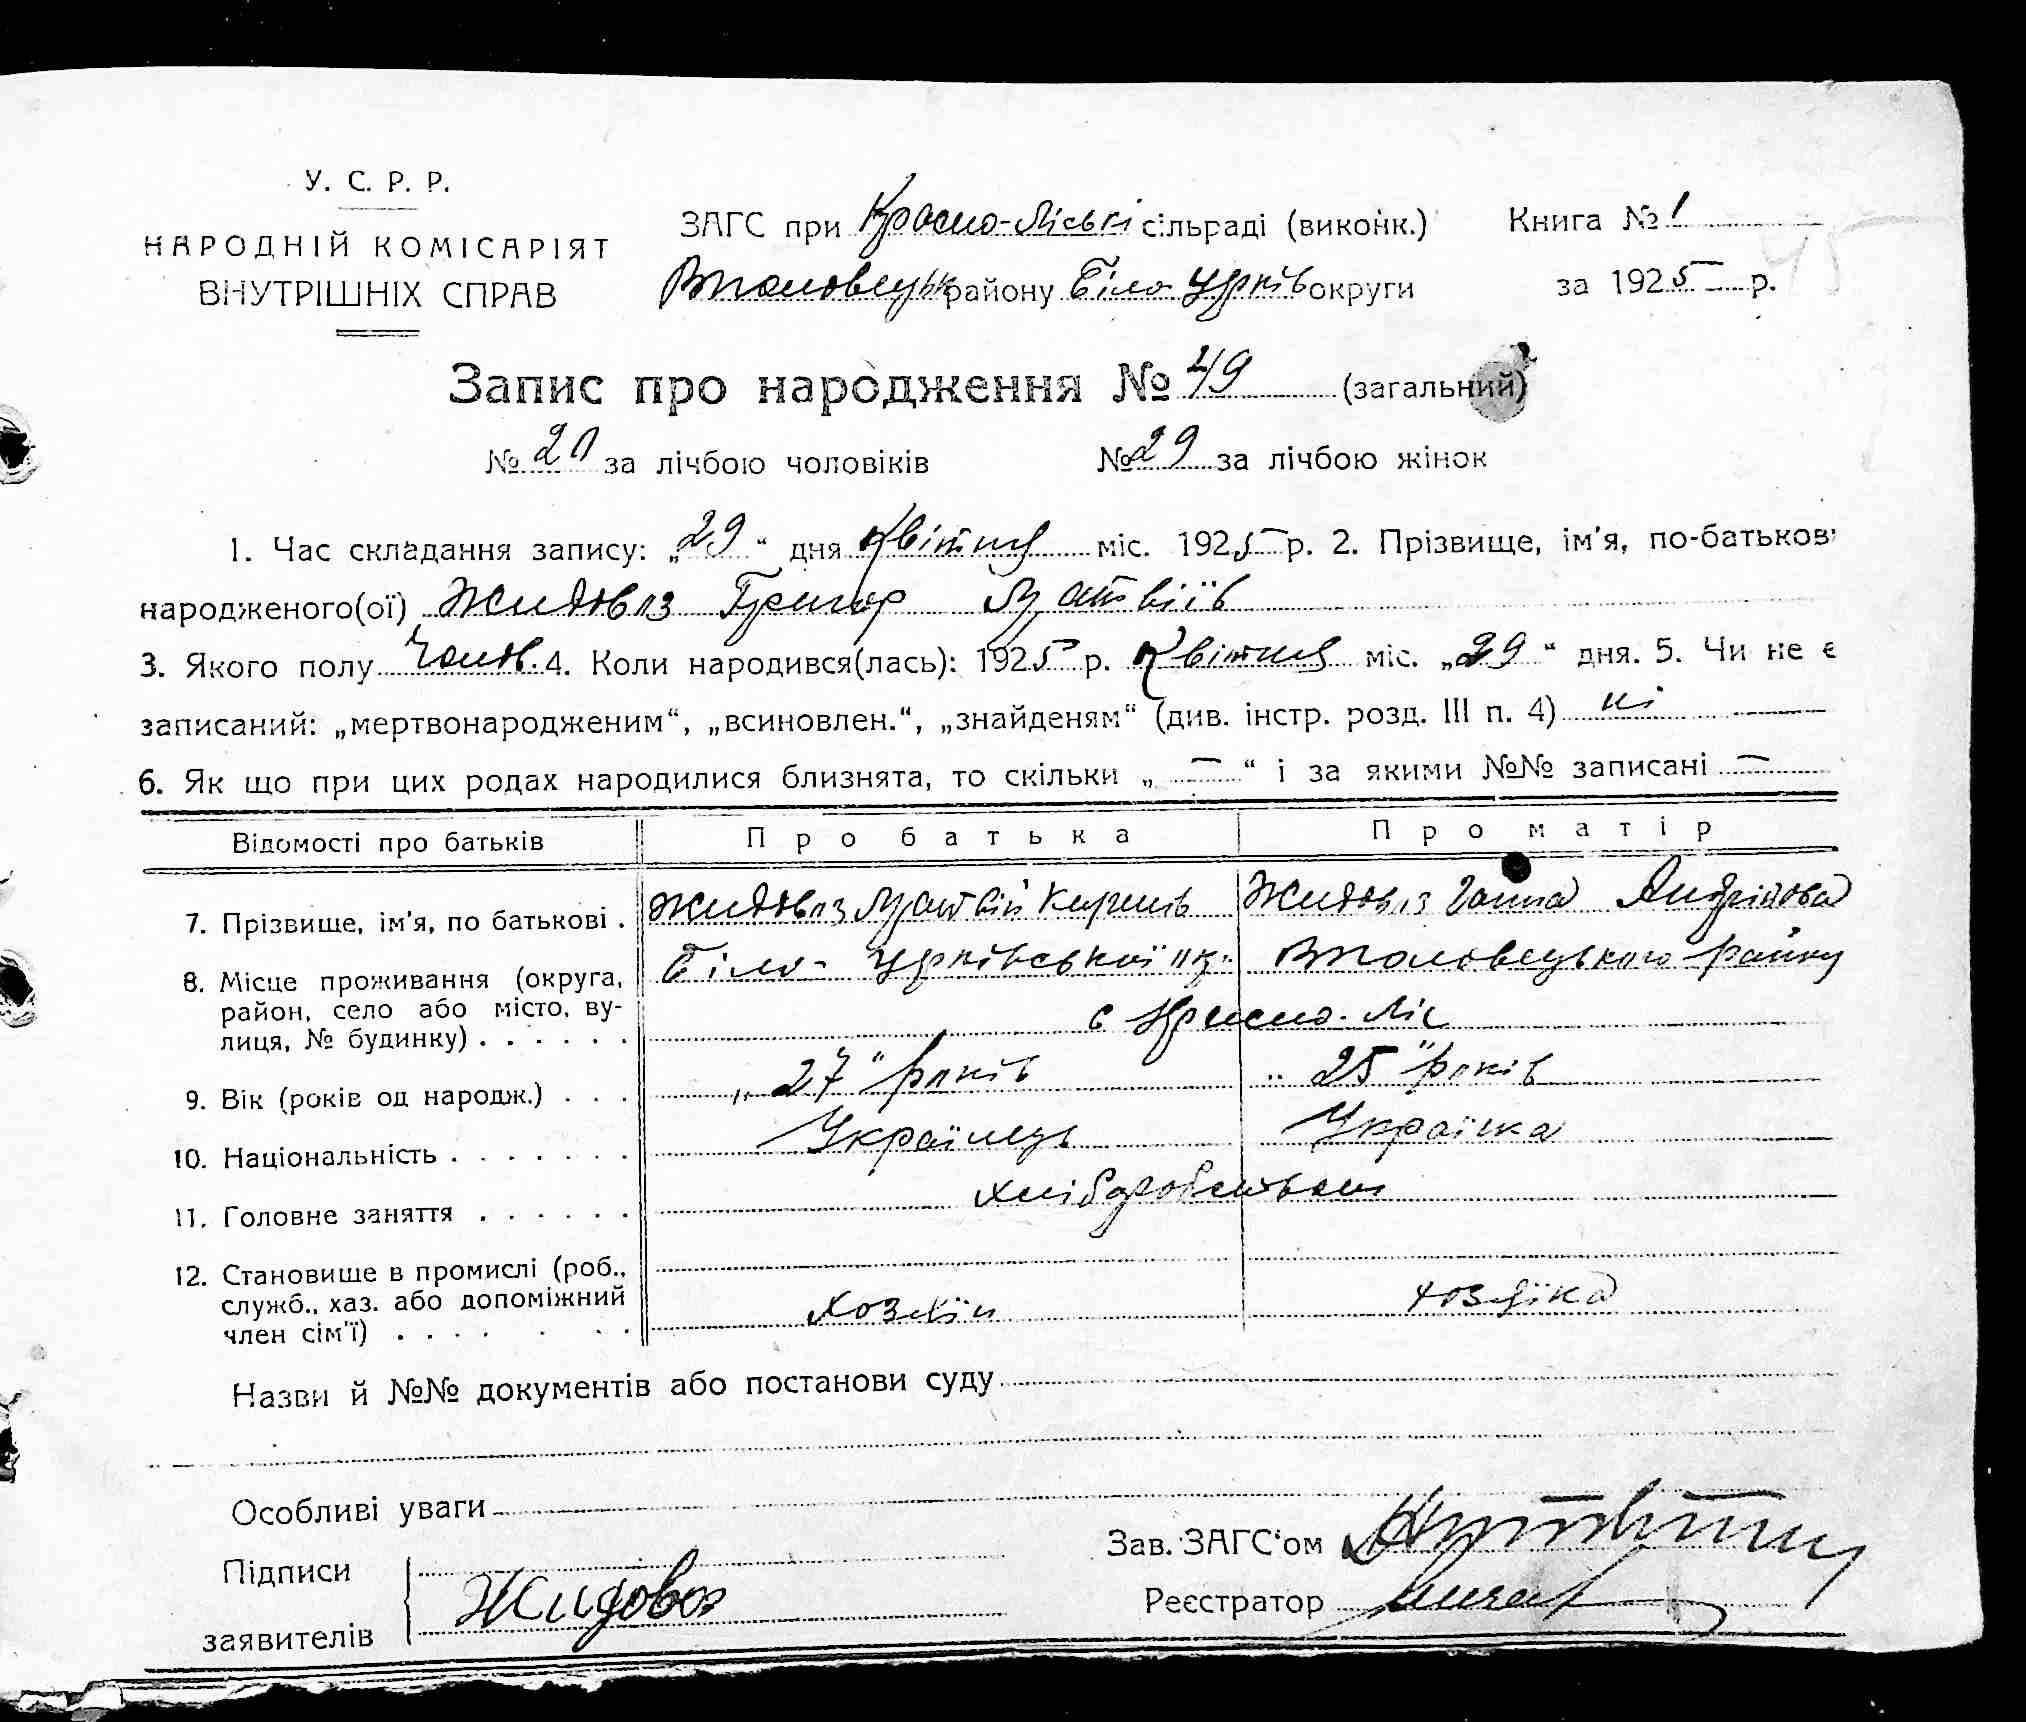 У. С. Р. Р.
НАРОДНІЙ КОМІСАРІЯТ
ВНУТРІШНІХ СПРАВ
ЗАГС при Красно-Ліські сільраді (виконк.) Книга № 1
району Біло Церків округи за 1925 р.
Запис про народження № 49 (загальний)
№ 20 за лічбою чоловіків № 29 за лічбою жінок
1. Час складання запису: „29“ дня квітня міс. 1925 р. 2. Прізвище, ім'я, по-батькові
народженого(ої) Жидовоз Григор Матвіїв
3. Якого полу Чолов. 4. Коли народився(лась): 1925 р. квітня міс. „29“ дня. 5. Чи не є
записаний: „мертвонародженим“, „всиновлен.“, „знайденям“ (див. інстр. розд. III п. 4) ні
6. Як що при цих родах народилися близнята, то скільки „ — “ і за якими №№ записані —
Відомості про батьків Про батька Про матір
7. Прізвище, ім'я, по батькові . Жидовоз Матвій Кирилів Жидовоз Ганна Андріїова
8. Місце проживання (округа, район, село або місто, вулиця, № будинку) . . . . . . Біло-Церківської ок. району
с Красно-Ліс
9. Вік (років од народж.) . . . „27“ років „25“ років
10. Національність . . . . . . . Українець Українка
11. Головне заняття . . . . . . хліборобством
12. Становище в промислі (роб., служб., хаз. або допоміжний член сім'ї) . . . . . . хозяїн хозяїка
Назви й №№ документів або постанови суду
Особливі уваги
Підписи
заявителів Жидовоз
Зав. ЗАГС'ом
Реєстратор